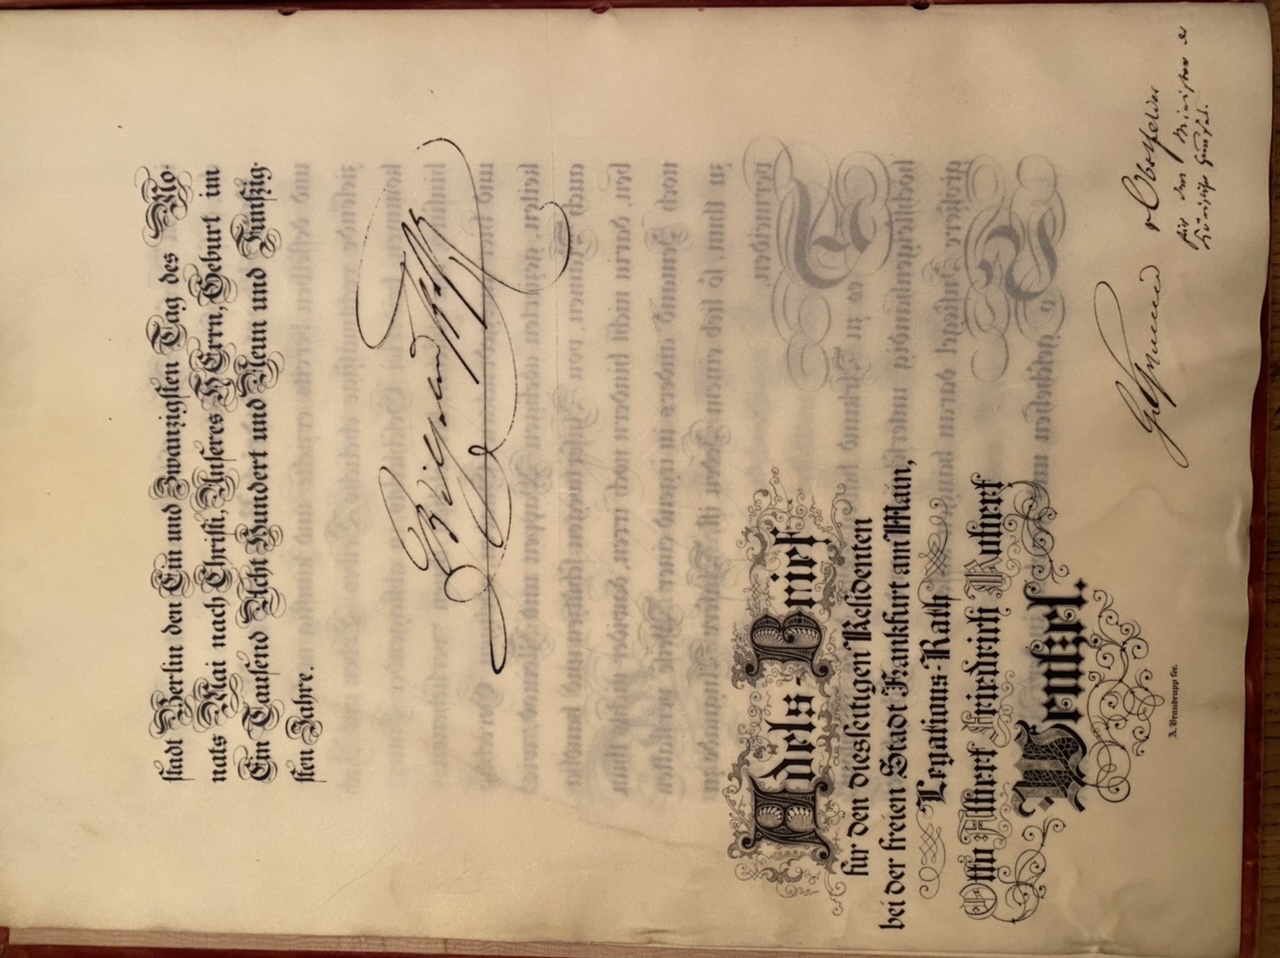 stadt Berlin den Ein und Zwanzigsten Tag des Mo-
nats Mai nach Christi, Unseres HErrn, Geburt im
Ein Tausend Acht Hundert und Neun und Funfzig-
sten Jahre.
Wilhelm
Adels-Brief
für den diesseitigen Residenten
bei der freien Stadt Frankfurt am Main,
Legations-Rath
Otto Albert Friedrich Robert
Wentzel.
v Obstfelder
für den Minister des
Königlichen Hauses.
A. Brandrupp fec.